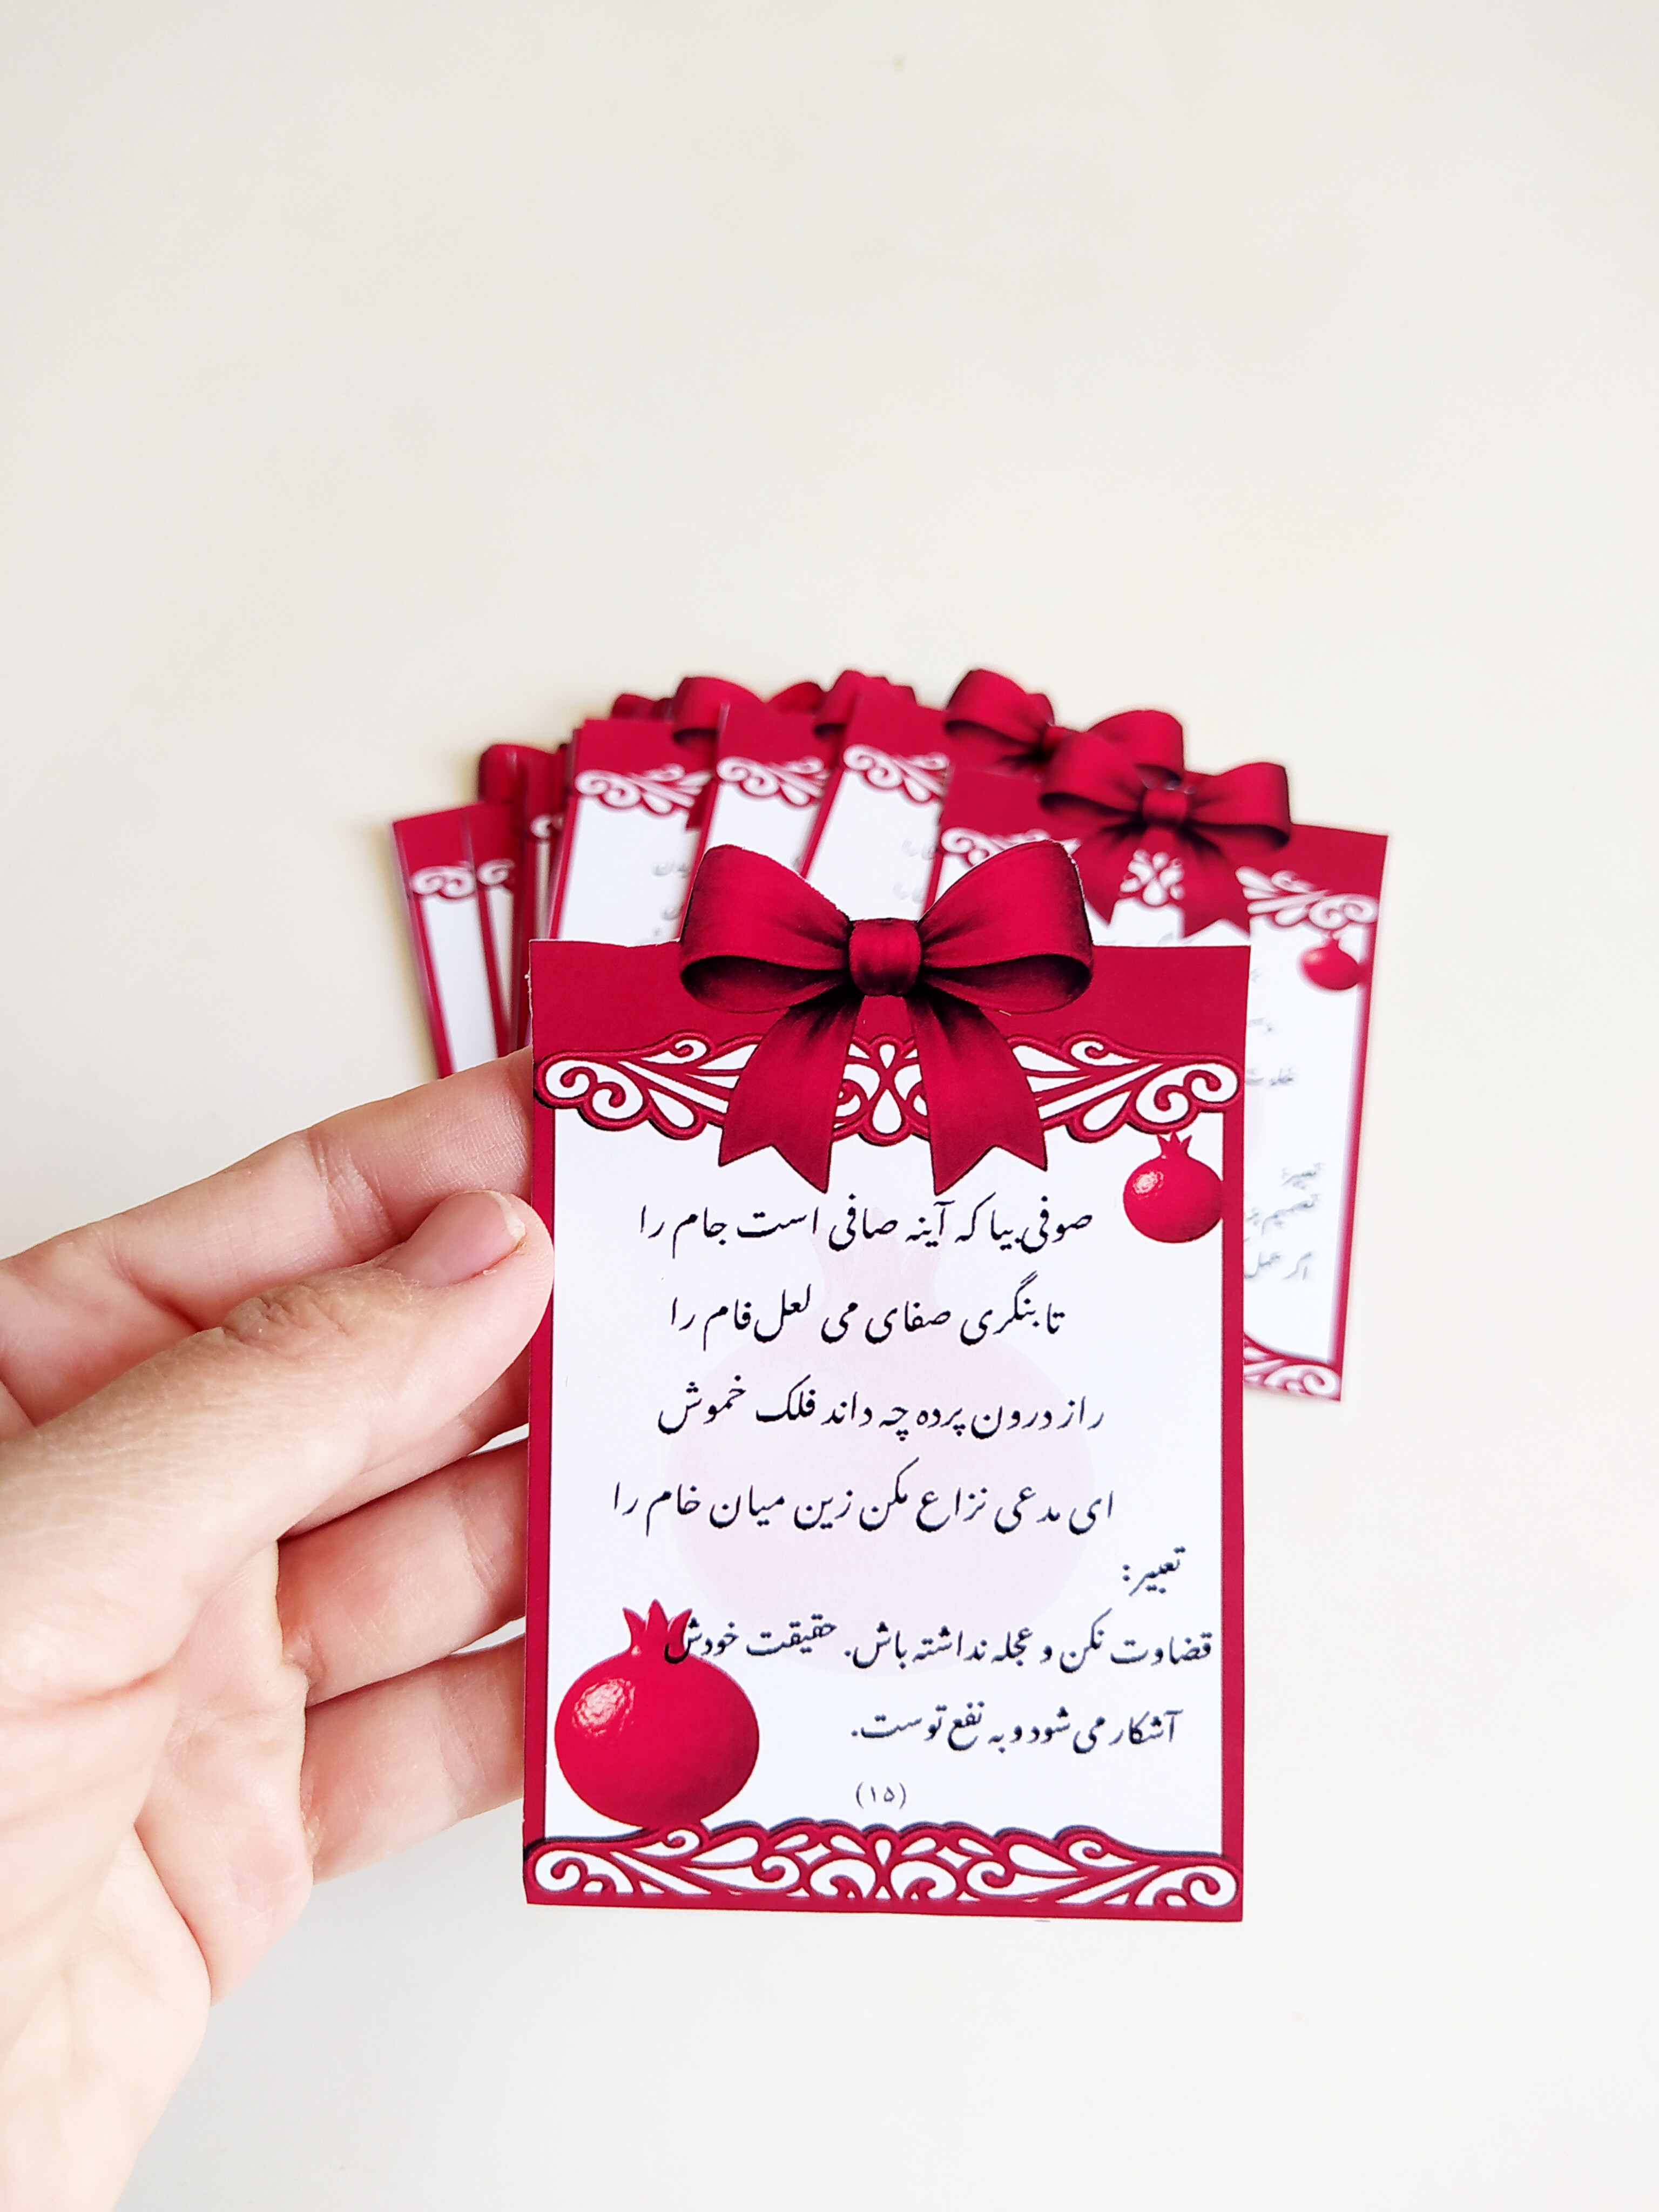 صوفی بیا که آینه صافی است جام را
تا بنگری صفای می لعل فام را
راز درون پرده چه داند فلک خموش
ای مدعی نزاع مکن زین میان خام را
تعبیر:
قضاوت نکن و عجله نداشته باش. حقیقت خودش
آشکار می شود و به نفع توست.
(۱۵)
تعبیر:
تصمیم
اگر عمل